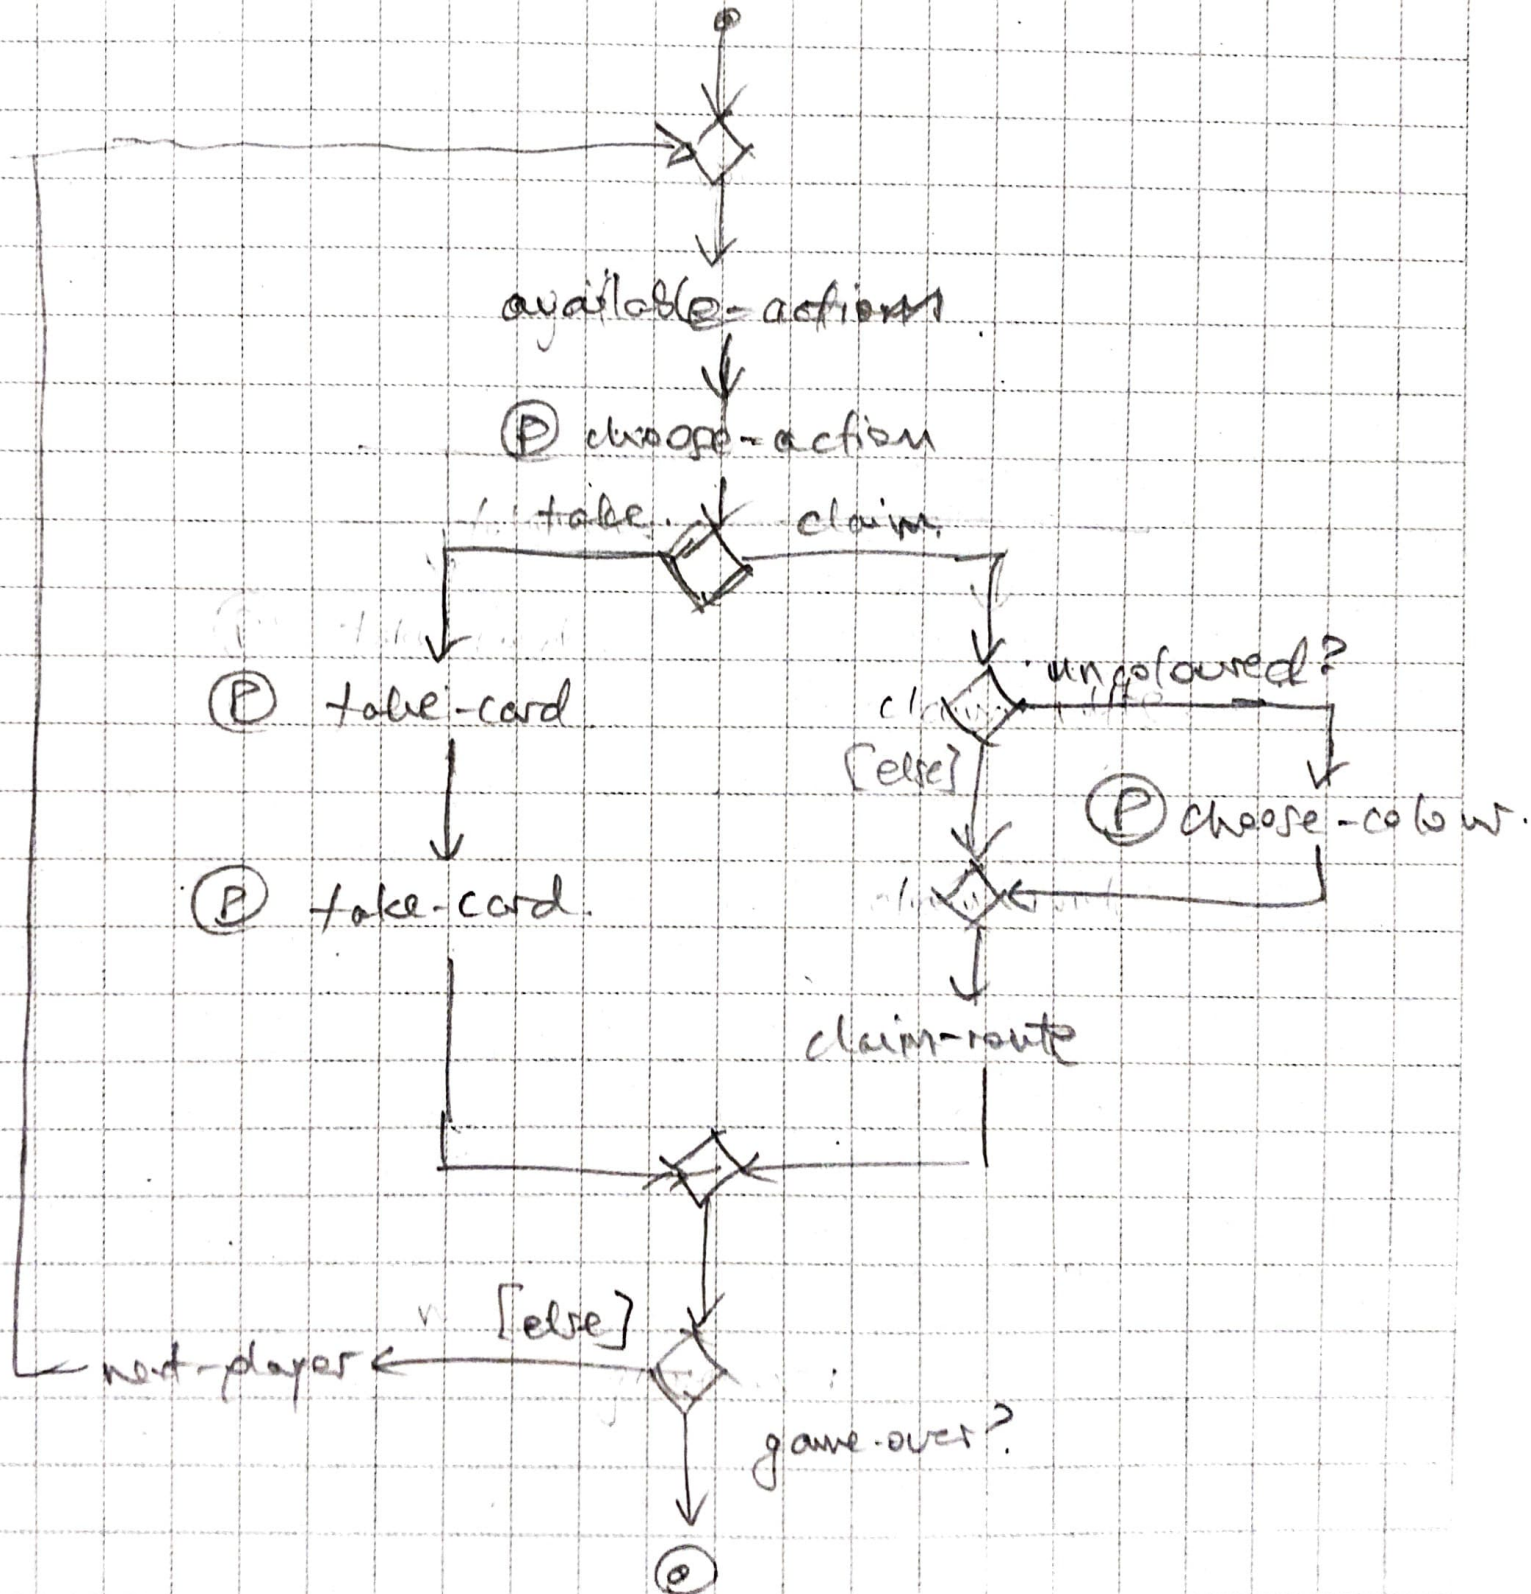 available-actions
Ⓟ choose-action
take claim
uncoloured?
Ⓟ take-card
[else]
Ⓟ choose-colour
Ⓟ take-card
claim-route
[else]
next-player
game-over?